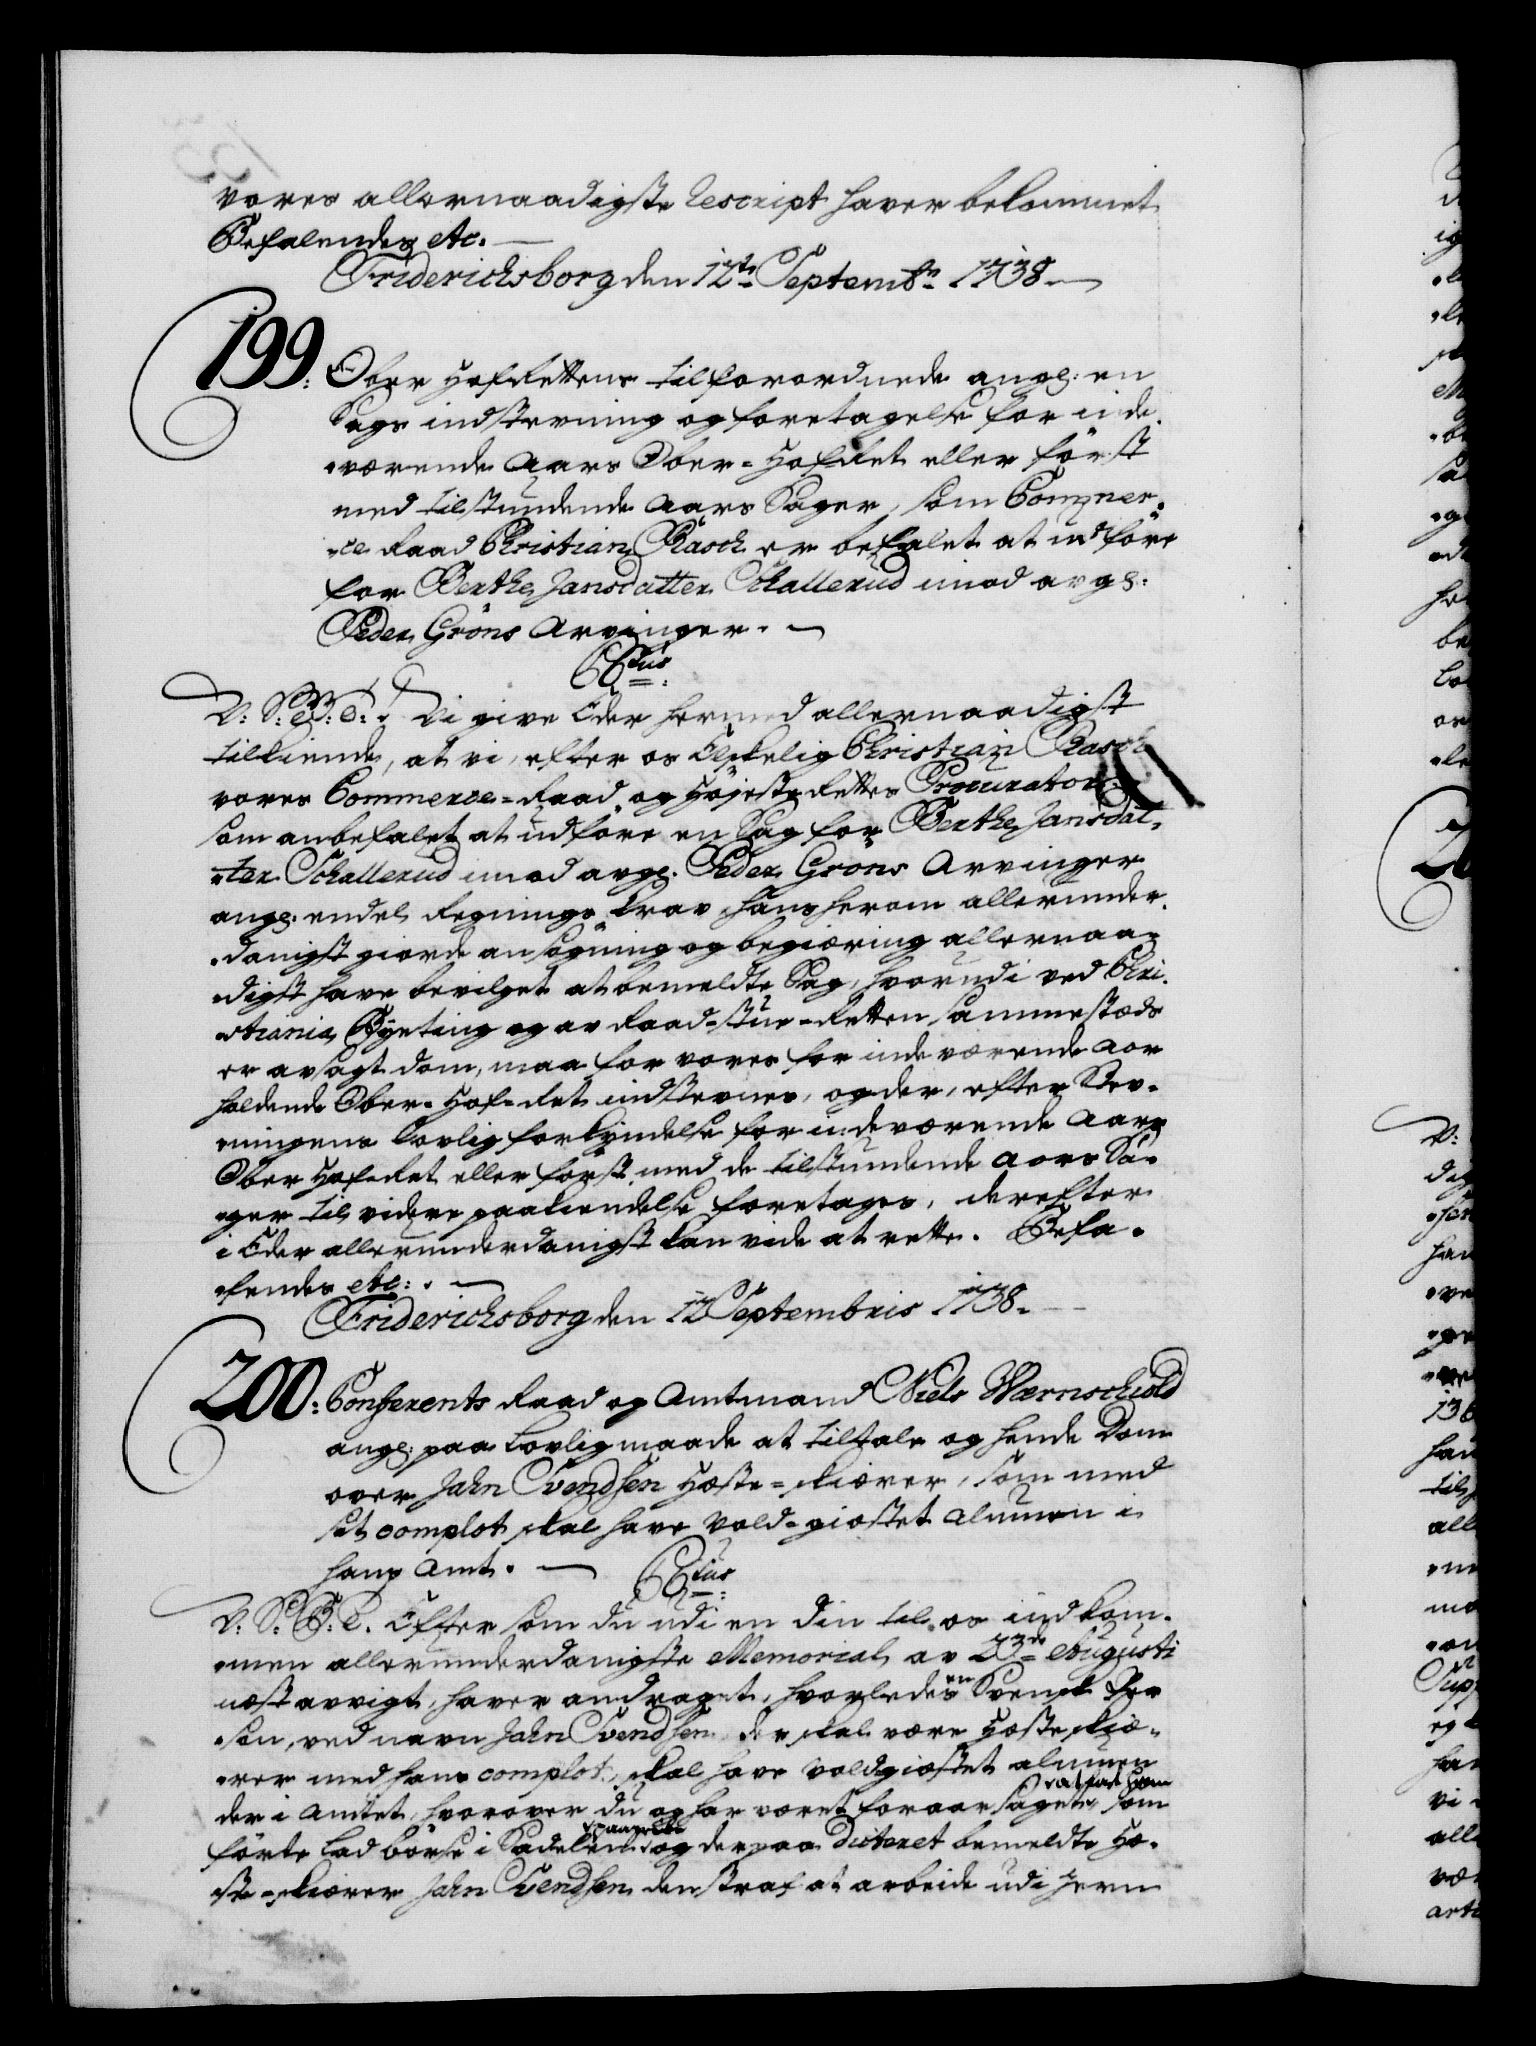 vores allernaadigste Rescript haver bekommet
Befalendes etc.
Friderichsborg den 12te Septembr 1738.
199. Ober HofRettens tilforordnede ang: en
Sags indstevning og foretagelse for inde-
værende Aars Ober-HofRet eller först
med tilstundende Aars Sager, som Commer-
ce Raad Christian Rasch er befalet at udföre
for Berthe Jansdatter Schallerud imod avg:
Peder Gröns Arvinger.
C6tus
V: S: G: T: Vi give Eder hermed allernaadigst
tilkiende, at vi, efter os Elskelig Christian Rasch
vores Commerce-Raad og Höjeste Rettes Procurator
som anbefalet at udföre en Sag for Berthe Jansdat-
ter Schallerud imod avg: Peder Gröns Arvinger
ang: endel Regnings Krav, hans herom allerunder-
danigst giorde ansögning og begiæring allernaa-
digst have bevilget at bemeldte Sag, hvorudi ved Chri-
stiania Byeting og av Raad-stue-Retten sammestæds
er avsagt dom, maa for vores for indeværende Aar
holdende Ober-Hof-Ret indstevnes, og der, efter Stev-
ningens lovlig forkyndelse for indeværende Aars
Ober HofRet eller först med de tilstundende Aars Sa-
ger til videre paakiendelse foretages, derefter
i Eder allerunderdanigst kan vide at rette. Befa-
lendes etc:
Friderichsborg den 12 Septembris 1738.
200: Conferents Raad og Amtmand Niels Wærnschiold
ang: paa lovlig maade at tiltale og hende Dom
over Jahn Svendsen Hæste-skiærer, som med
sit complot skal have Vold-giæstet Almuen i
hans Amt.
C6tus
V: S: G: T. Efter som du udi en din til os indkom-
men allerunderdanigste Memorial av 23de Augusti
næst avvigt, haver andraget, hvorledes en Svensk Per
son, ved navn Jahn Svendsen, der skal være Hæsteskiæ-
rer med hans complot, skal have voldgiæstet almuen
der i Amtet, hvorover du og har været foraarsaget at lade ham som
förte lad börse i Sadelen og derpaa dicteret bemeldte Hæ-
ste-skiærer Jahn Svendsen den straf at arbeide udi Jern